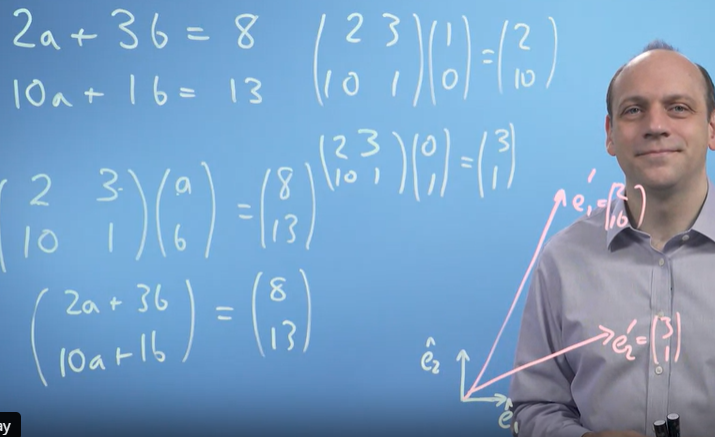 2a + 3b = 8
10a + 1b = 13
(2 3
10 1)(1
0) = (2
10)
(2 3
10 1)(0
1) = (3
1)
(2 3
10 1)(a
b) = (8
13)
(2a + 3b
10a + 1b) = (8
13)
e₁' = (2
10)
e₂' = (3
1)
ê₂